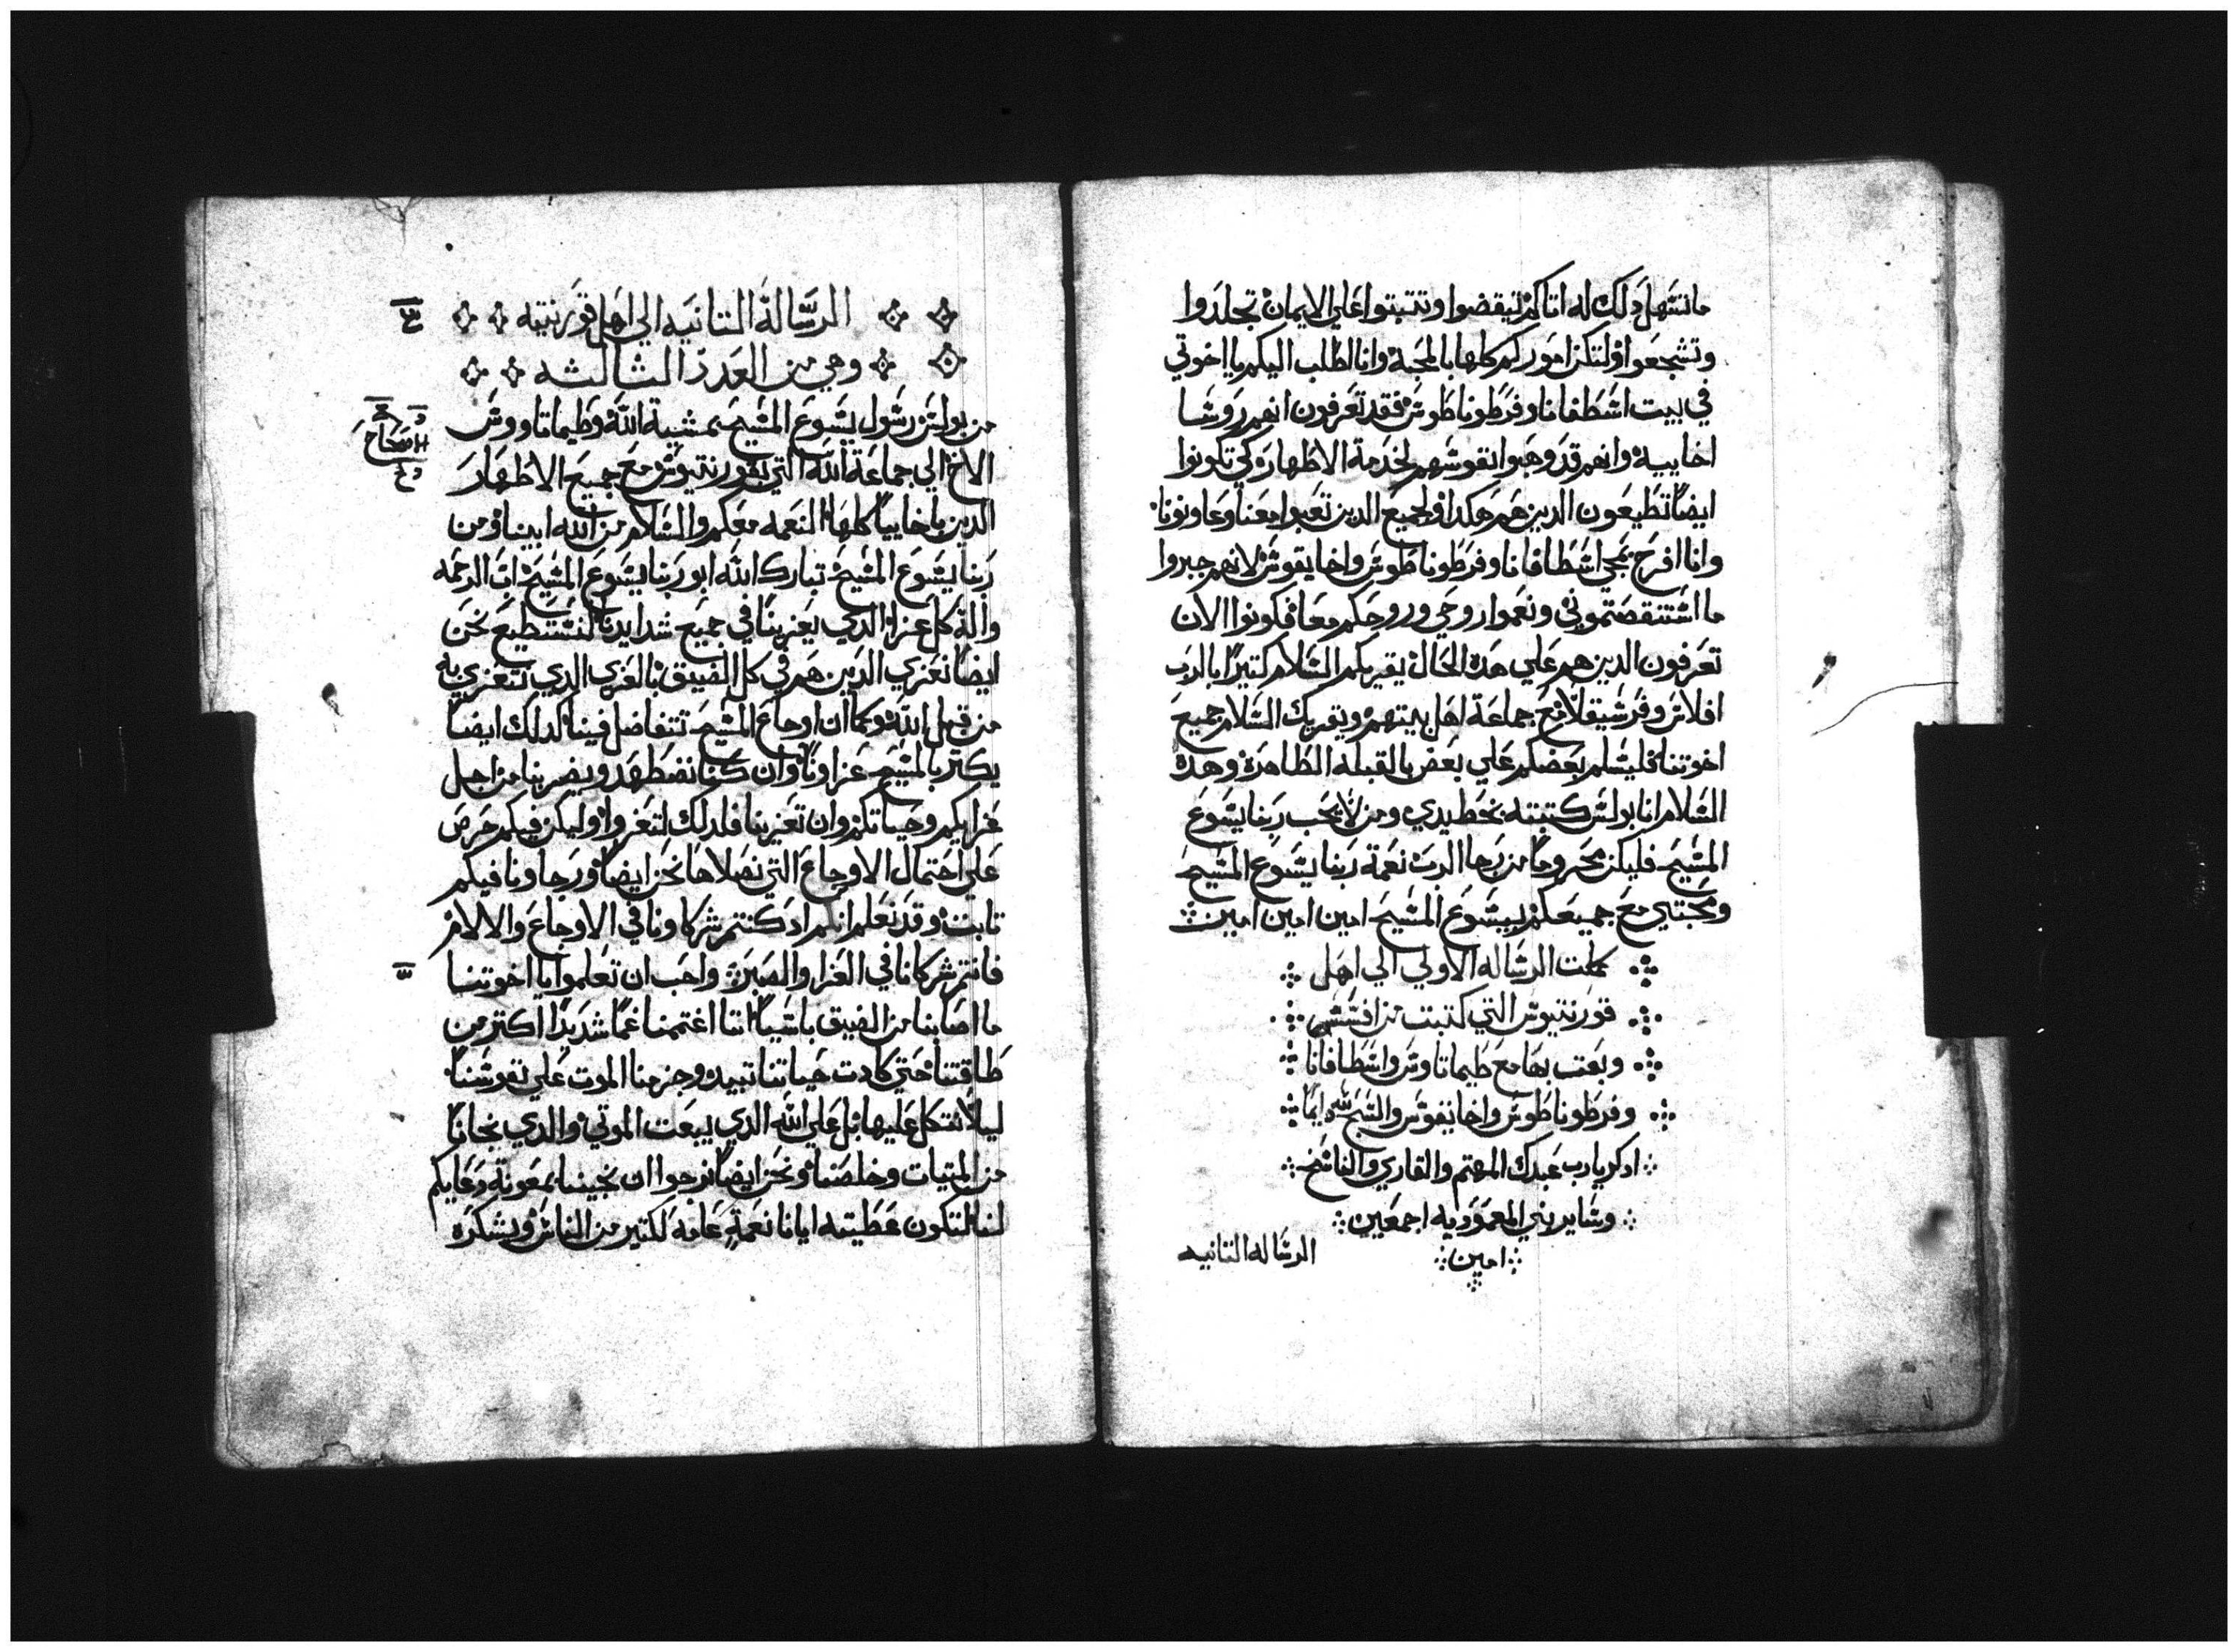 ما تسهل دلك له اتاكم تيقضوا وتتبتوا علي الايمان تجلدوا
وتشجعوا ولتكن اموركم كلها بالمحبة وانا اطلب اليكم يا اخوتي
في بيت اسطفانا وفرطوناطوس فقد تعرفون انهم روسا
اخاييه وانهم قد وهبوا نفوسهم لخدمة الاطهار كي تكونوا
ايضا تطيعون الدين هم هكدا ولجميع الدين تعبوا معنا وعاونونا
وانا افرح بمجي اسطافانا وفرطوناطوس واخايقوس لانهم جبروا
ما استنقصتموني ونعموا روحي وروحكم معا فكونوا الان
تعرفون الدين هم علي هده الحال يقريكم السلام كتيرا بالرب
افلاس وفرسيقلا مع جماعة اهل بيتهم ويقريك السلام جميع
اخوتنا فليسلم بعضكم علي بعض بالقبله الطاهره وهدة
السلام انا بولس كتبته بخط يدي ومن لا يحب ربنا يسوع
المسيح فليكن محروما من رجا الرب نعمة ربنا يسوع المسيح
ومحبتي مع جميعكم بيسوع المسيح امين امين امين
كملت الرساله الاولي الي اهل
قورنتيوس التي كتبت من افسس
وبعت بها مع طيماتاوس واسطافانا
وفرطوناطوس واخايقوس والسبح لله دايما
ادكر يا رب عبدك المهتم والقاري والناسخ
وساير بني المعموديه اجمعين
امين
الرساله التانيه
الرسالة التانيه الي اهل قورنتيه
وهي من العدد الثالثه
من بولس رسول يسوع المسيح بمشيية الله وطيماتاووس
الاخ الي جماعة الله التي بقورنتيوس مع جميع الاطهار
الدين باخاييا كلها النعمه معكم والسلام من الله ابينا ومن
ربنا يسوع المسيح تبارك الله ابو ربنا يسوع المسيح اب الرحمه
واله كل عزا الدي يعزينا في جميع شدايدنا لنستطيع نحن
ايضا نعزي الدين هم في كل الضيق بالعزي الدي نتعزي به
من قبل الله وكما ان اوجاع المسيح تتفاضل فينا كدلك ايضا
يكتر بالمسيح عزاونا وان كنا نضطهد ويضر بنا من اجل
عزايكم وحياتكم وان تعزينا فلدلك لتعزوا وليكن فيكم حرص
علي احتمال الاوجاع التي نصلاها نحن ايضا ورجاونا فيكم
تابت وقد نعلم انكم اد كنتم شركاونا في الاوجاع والالام
فانتم شركانا في العزا والصبر واحب ان تعلموا يا اخوتنا
ما اصابنا من الضيق باسيا اننا اغتممنا غما شديدا اكتر من
طاقتنا حتي كادت حياتنا تبيد وجزمنا الموت علي نفوسنا
ليلا نتكل عليها بل علي الله الدي يبعت الموتي والدي نجانا
من الميتات وخلصنا ونحن ايضا نرجوا ان ينجينا بمعونة دعايكم
لنا لتكون عطيته ايانا نعمة عامه لكتير من الناس ويشكره